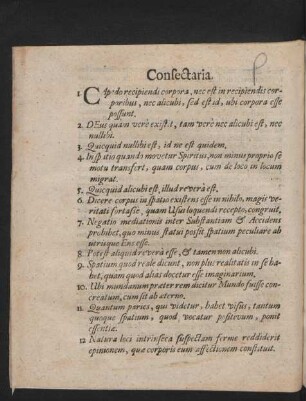 Consectaria.
1. Cupedo recipiendi corpora, nec est in recipiendis cor-
poribus, nec alicubi, sed est id, ubi corpora esse
possunt.
2. DEus quàm verè existit, tam verè nec alicubi est, nec
nullibi.
3. Quicquid nullibi est, id ne est quidem.
4. In situs quandò movetur Spiritus, non minus proprio se
motu transfert, quàm corpus, cum de loco in locum
migrat.
5. Quicquid alicubi est, illud reverà est.
6. Dicere corpus in spatio existens esse in nihilo, magis ve-
ritati fortasse, quàm Usui loquendi recepto, congruit.
7. Negatio mediationis inter Substantiam & Accidens
prohibet, quo minus statui possit spatium peculiare ab
utrisque Ens esse.
8. Potest aliquid reverà esse, & tamen non alicubi.
9. Spatium quod reale dicunt, non plus realitatis in se ha-
bet, quàm quod alias docetur esse imaginarium.
10. Ubi mundanum præter rem dicitur Mundo fuisse con-
creatum, cum sit ab æterno.
11. Quantum parici, qui videtur, habet visus, tantum
quoque spatium, quod vocatur positivum, ponit
essentiæ.
12. Natura loci intrinseca suspectam ferme reddiderit
opinionem, quæ corporis eum affectionem constituit.